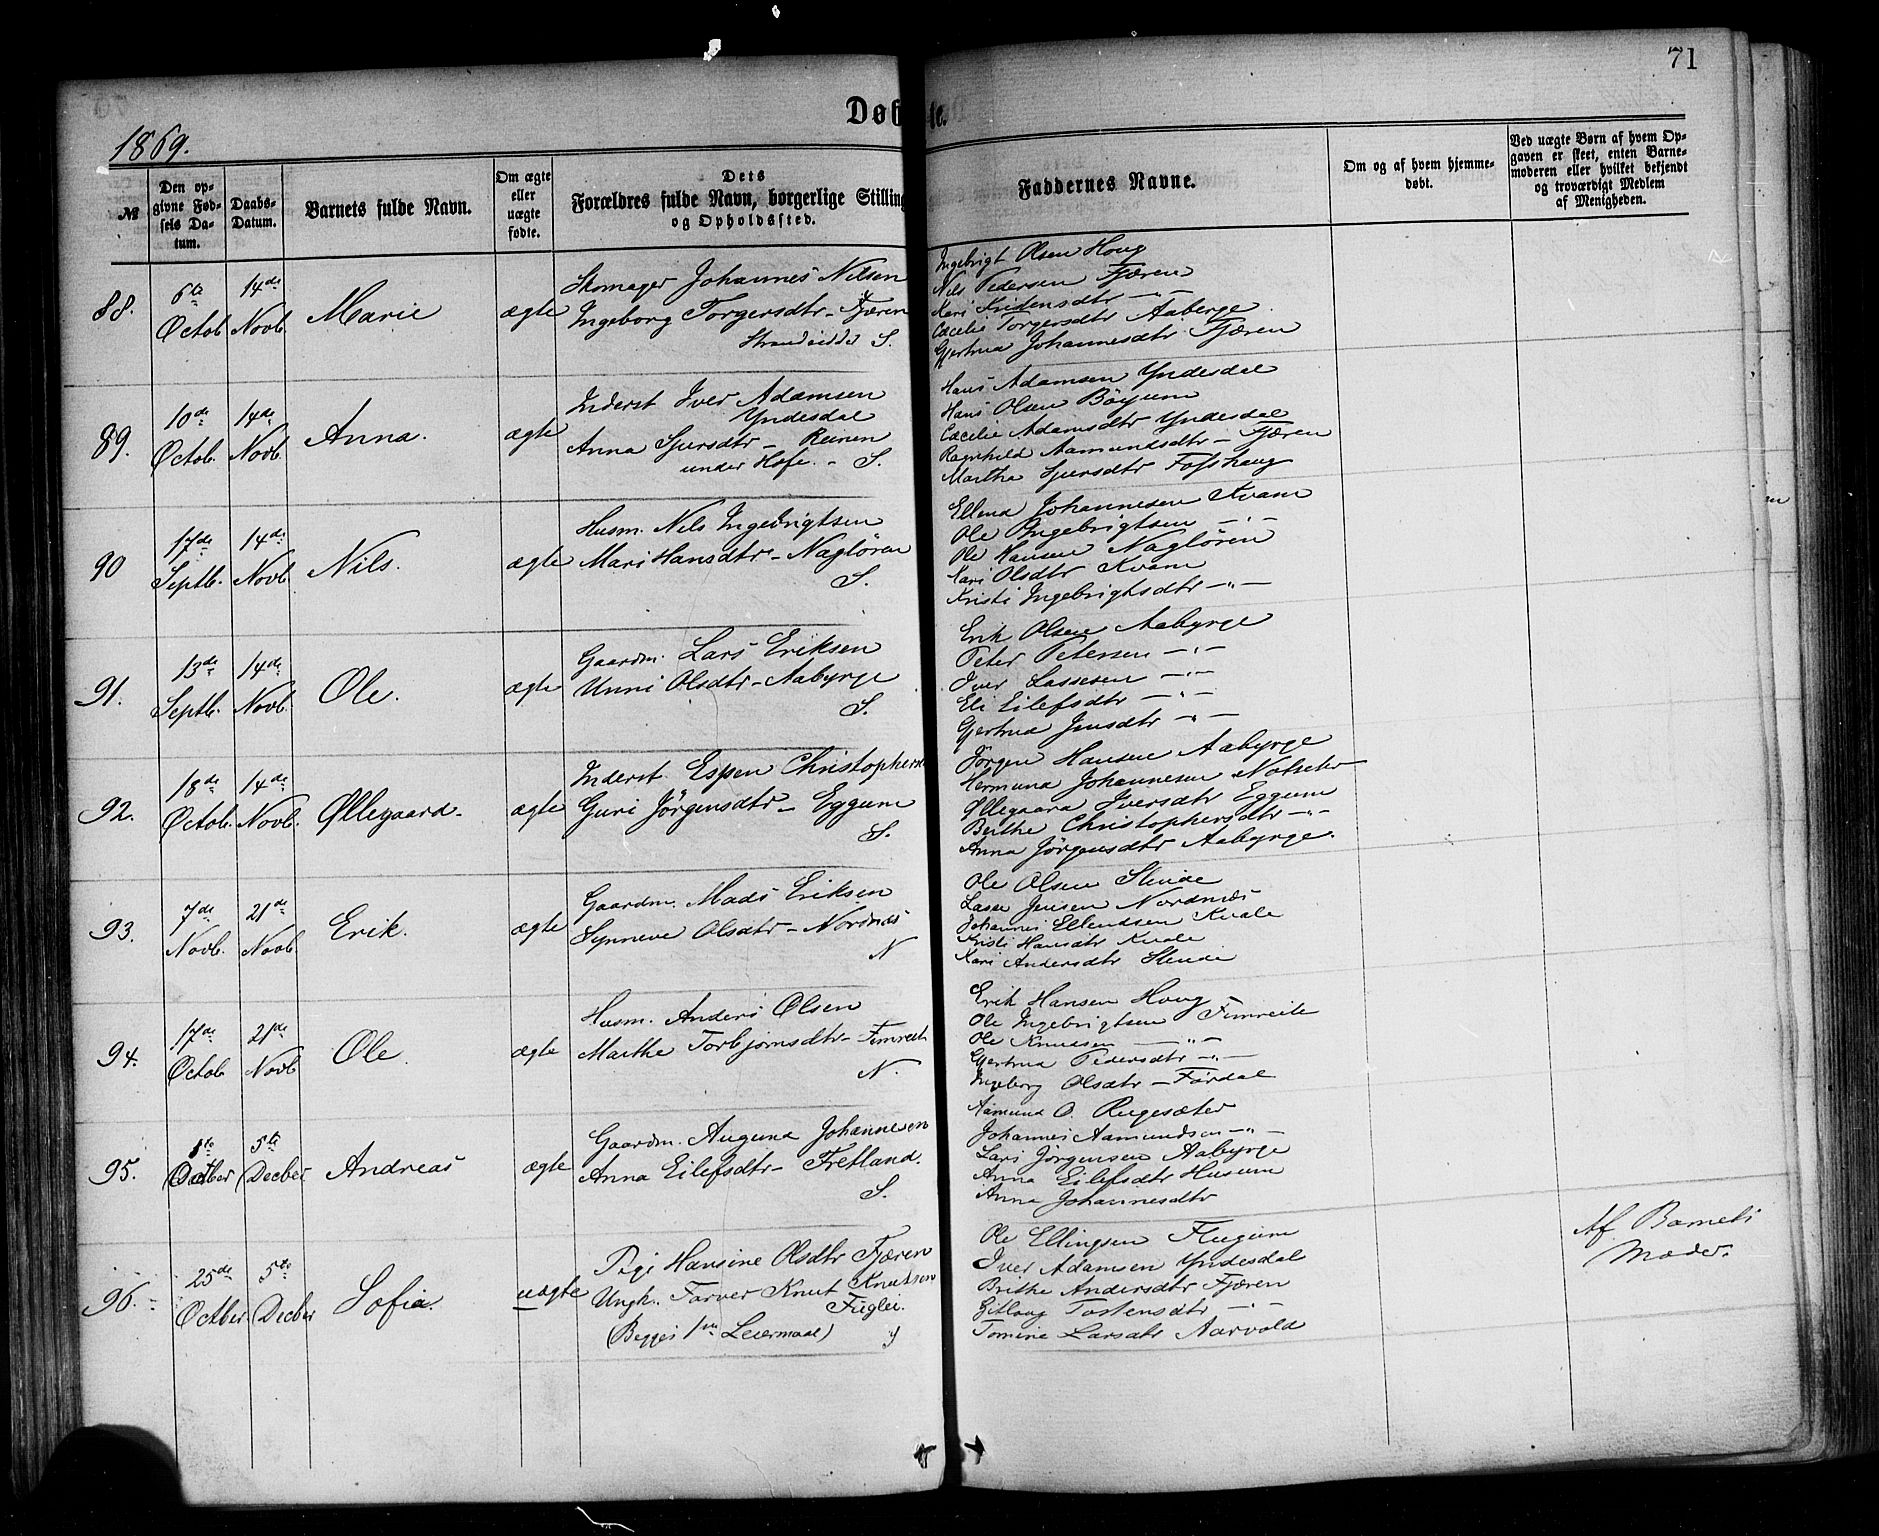 71
Døbte.
1869.
№
Den opgivne Fødsels Datum.
Daabs-Datum.
Barnets fulde Navn.
Om ægte eller uægte fødte.
Dets Forældres fulde Navn, borgerlige Stilling og Opholdssted.
Faddernes Navne.
Om og af hvem hjemmedøbt.
Ved uægte Børn af hvem Opgaven er skeet, enten Barnemoderen eller hvilket bekjendt og troværdigt Medlem af Menigheden.
88. 6te Octob. 14de Novb. Marie ægte
Skomager Johannes Nilsen
Ingeborg Torgersdtr - Fjæren
S.
Ingebrigt Olsen Houg
Nils Pedersen Fjæren
Kari -"-
Cæcilie Torgersdtr Aaberge
Gjertrud Johannesdtr Fjæren
89. 10de Octob. 14de Novb. Anna. ægte
Inderst Iver Adamsen
Yndesdal
Anna Sjursdtr - Reinen
under Hofe. - S.
Hans Adamsen Yndesdal
Hans Olsen Böyum
Cæcilie Adamsdtr Yndesdal
Ragnhild Aamundsdtr - Fjæren
Martha Sjursdtr Fosshaug
90 17de Septb. 14de Novb. Nils. ægte
Husm. Nils Ingebrigtsen
Mari Hansdtr - Naglören
S.
Ellend Johannesen Kvam
Ole Ingebrigtsen -"-
Ole Hansen Naglören
Kari Olsdtr Kvam
Kristi Ingebrigtsdtr -"-
91. 13de Septb. 14de Novb. Ole. ægte
Gaardm. Lars Eriksen
Unni Olsdtr - Aabyrge
S.
Erik Olsen Aabyrge
Peter Petersen -"-
Iver Lassesen -"-
Eli Eilefsdtr -"-
Gjertrud Jensdtr -"-
92. 18de Octob. 14de Novb. Øllegaard. ægte
Inderst. Espen Christophers
Guri Jörgensdtr - Eggum
S.
Jörgen Hansen Aabyrge
Hermund Johannesen Notseter
Øllegaard Iversdtr Eggum
Brithe Christophersdtr -"-
Anna Jörgensdtr Aabyrge.
93. 7de Novb. 21de Novb. Erik. ægte
Gaardm. Mads Eriksen
Synneve Olsdtr - Nordnæs
N
Ole Olsen Slinde
Lasse Jensen Nordnæs
Johannes Ellendsen Kvale
Kristi Hansdtr Kvale
Kari Andersdtr Slinde
94. 17de Octob 21de Novb Ole. ægte
Husm. Anders Olsen
Marthe Torbjørnsdtr - Fimreit
N.
Erik Hansen Houg
Ole Ingebrigtsen Fimreite
Ole Knudsen -"-
Gjertrud Pedersdtr -"-
Ingeborg Olsdtr - Fardal
95. 5te Decber Andreas ægte
Gaardm. Augund Johannesen
Anna Eilefsdtr - Fretland.
S.
Aamund O. Rugesæter
Johannes Aamundsen -"-
Lars Jörgensen Aabyrge
Anna Eilefsdtr Husum
Anna Johannesdtr
96. 25de Octber. 5te Decber Sofia. uægte
Pige Hansine Olsdtr Fjæren
Ungk. Farver Knut Knutsen
Fuglei.
(Begges 1ste Leiermaal)
Ole Ellingsen Flugum
Iver Adamsen Yndesdal
Brithe Andersdtr Fjæren
Torstensdtr -"-
Tomine Larsdtr Aarvold
Af Barnets
Moder.